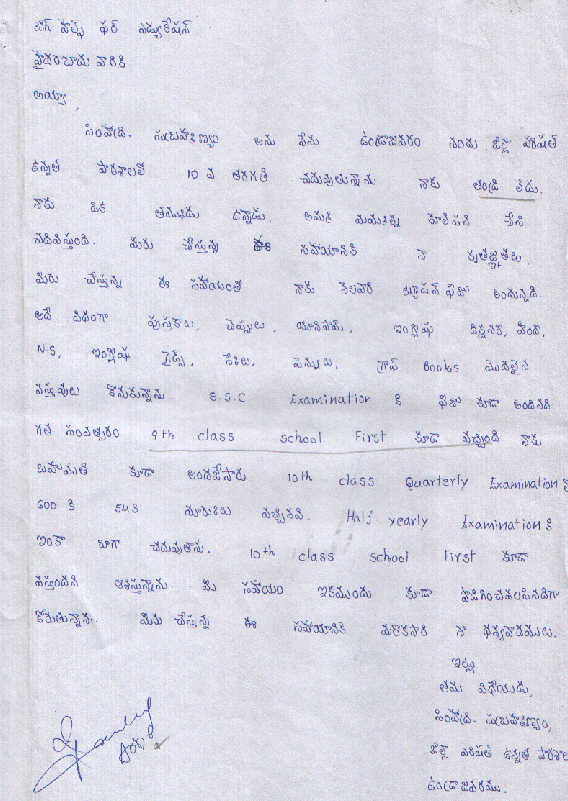 హైదరాబాదు వారికి
అయ్యా,
సింహాద్రి. సుబ్రహ్మణ్యం అను నేను ఉండ్రాజవరం నందు జిల్లా పరిషత్
ఉన్నత పాఠశాలలో 10 వ తరగతి చదువుతున్నాను నాకు తండ్రి లేడు.
నాకు ఒక తమ్ముడు ఉన్నాడు. అమ్మ మమ్మల్ని కూలిపని చేసి
చదివిస్తుంది. మీరు చేస్తున్న ఈ సహాయానికి నా కృతజ్ఞతలు.
మీరు చేస్తున్న ఈ సహాయంతో నాకు నెలవారి ట్యూషన్ ఫీజు అందున్నది
అదే విధంగా పుస్తకాలు, చెప్పులు, యూనిఫామ్, ఇంగ్లీషు డిక్షనరీ, హిందీ,
N.S, ఇంగ్లీషు గైడ్స్, పెన్నులు, గ్రాఫ్ Books మొదలైన
వస్తువులు కొనుకున్నాను S.S.C Examination కి ఫీజు కూడా అందినది
గత సంవత్సరం 9th class school First కూడా వచ్చింది నాకు
బహుమతి కూడా అందజేసారు 10th class Quarterly Examination
600 కి 543 మార్కులు వచ్చినవి. Half yearly Examination కి
ఇంకా బాగా చదువుతాను. 10th class school first కూడా
వస్తుందని ఆశిస్తున్నాను మీ సహాయం ఇకముందు కూడా
కోరుతున్నాను. మీరు చేస్తున్న ఈ సహాయానికి మరొకసారి నా ధన్యవాదములు.
ఇట్లు
తమ విధేయుడు,
సింహాద్రి. సుబ్రహ్మణ్యం,
జిల్లా పరిషత్ ఉన్నత పాఠశాల
ఉండ్రాజవరము.